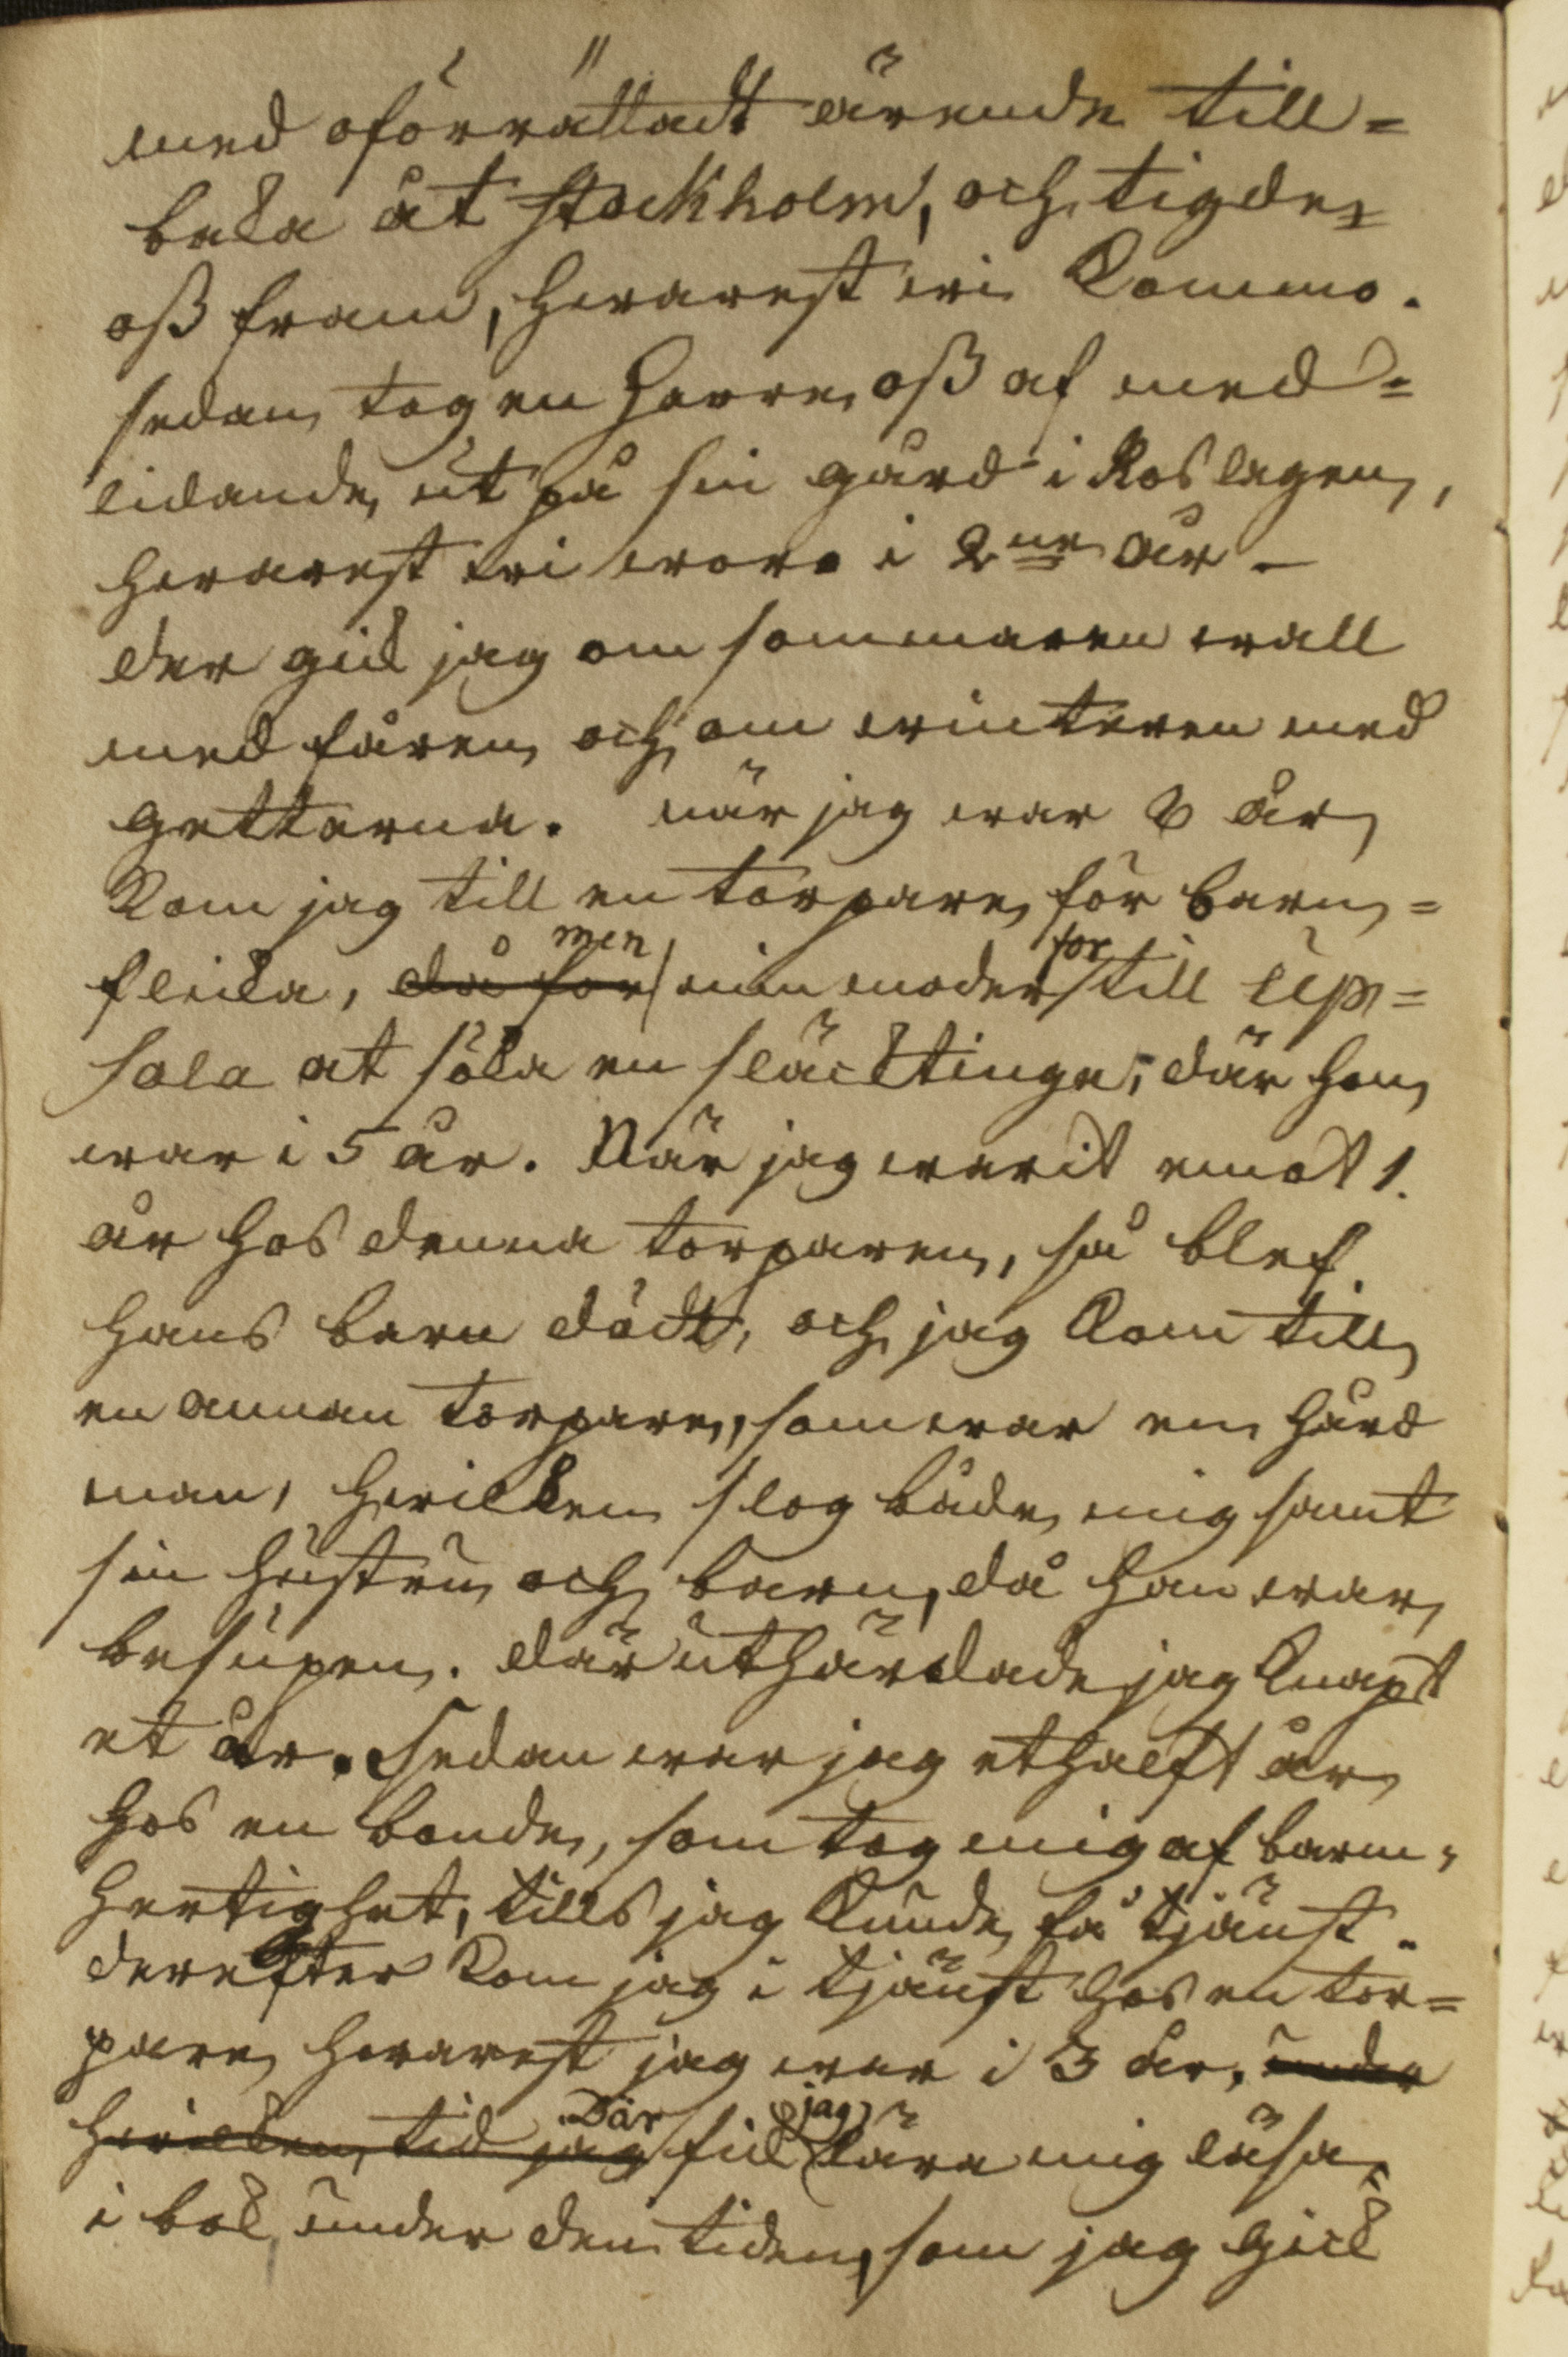 med oförrättadt ärende till=
baka åt Stockholm, och tigde
oss fram, hvarest wi kommo.
sedan tog en Herre oss af med=
lidande ut på sin gård i Roslagen,
hvarest wi woro i 2ne år –
der gick jag om sommaren wall
med fåren, och om winteren med
gettarna. när jag war 6 år
kom jag till en torpare för barn=
flicka, då for men min moder for till Up=
sala at söka en släcktinge, där hon
war i 5 år. När jag warit emot 1.
år hos denna torparen, så blef
hans barn dödt, och jag kom till
en annan torpare, som war en hård
man, hwilken slog både mig samt
sin hustru och barn, då han war
besupen. där uthärdade jag knapt
et år. Sedan war jag et halft år
hos en bonde, som tog mig af barm=
hertighet, tills jag kunde få tjänst.
derefter kom jag i tjänst hos en tor=
pare hvarest jag war i 3 år, under
hwilken tid jag Där fick jag lära mig läsa
i bok, under den tiden, som jag gick